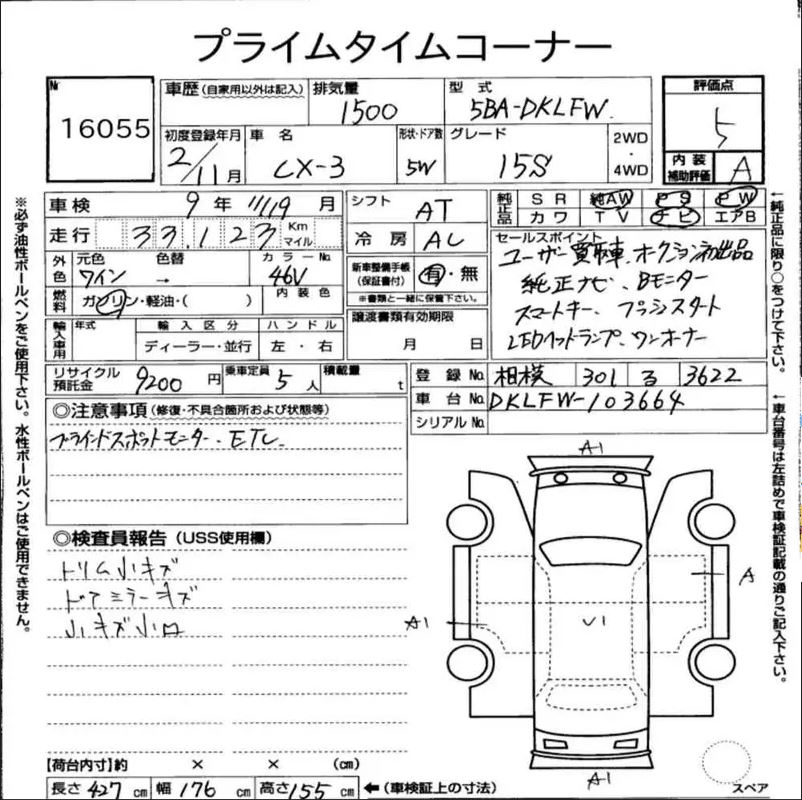 プライムタイムコーナー
№ 16055
車歴 (自家用以外は記入)
排気量 1500
型式 5BA-DKLFW
評価点 5
初度登録年月 2/11月
車名 CX-3
形状・ドア数 5W
グレード 15S
2WD・4WD
内装補助評価 A
車検 9年 11/19月
シフト AT
純正品 SR 純AW PS PW
カワ TV ナビ エアB
走行 33,123 Km マイル
冷房 AC
セールスポイント
ユーザー買取車、オークション初出品
純正ナビ、Bモニター
スマートキー、プッシュスタート
LEDヘッドランプ、ワンオーナー
外色 元色 ワイン 色替 → カラーNo. 46V
新車整備手帳(保証書付) 有・無
※書類と一緒に保管下さい。
燃料 ガソリン・軽油・( ) 内装色
譲渡書類有効期限
月 日
輸入車用 年式 輸入区分 ハンドル
ディーラー・並行 左・右
リサイクル預託金 9200円 乗車定員 5人 積載量 t
登録No. 相模 301 る 3622
車台No. DKLFW-103664
シリアルNo.
◎注意事項(修復・不具合箇所および状態等)
ブラインドスポットモニター、ETC
◎検査員報告(USS使用欄)
トリム小キズ
ドアミラーキズ
小キズ小凹
A1
A
A1
U1
A1
【荷台内寸】約 × × (cm)
長さ 427 cm 幅 176 cm 高さ 155 cm ←(車検証上の寸法)
スペア
※必ず油性ボールペンをご使用下さい。水性ボールペンはご使用できません。
←純正品に限り○をつけて下さい。
←車台番号は左詰めで車検証記載の通りご記入下さい。